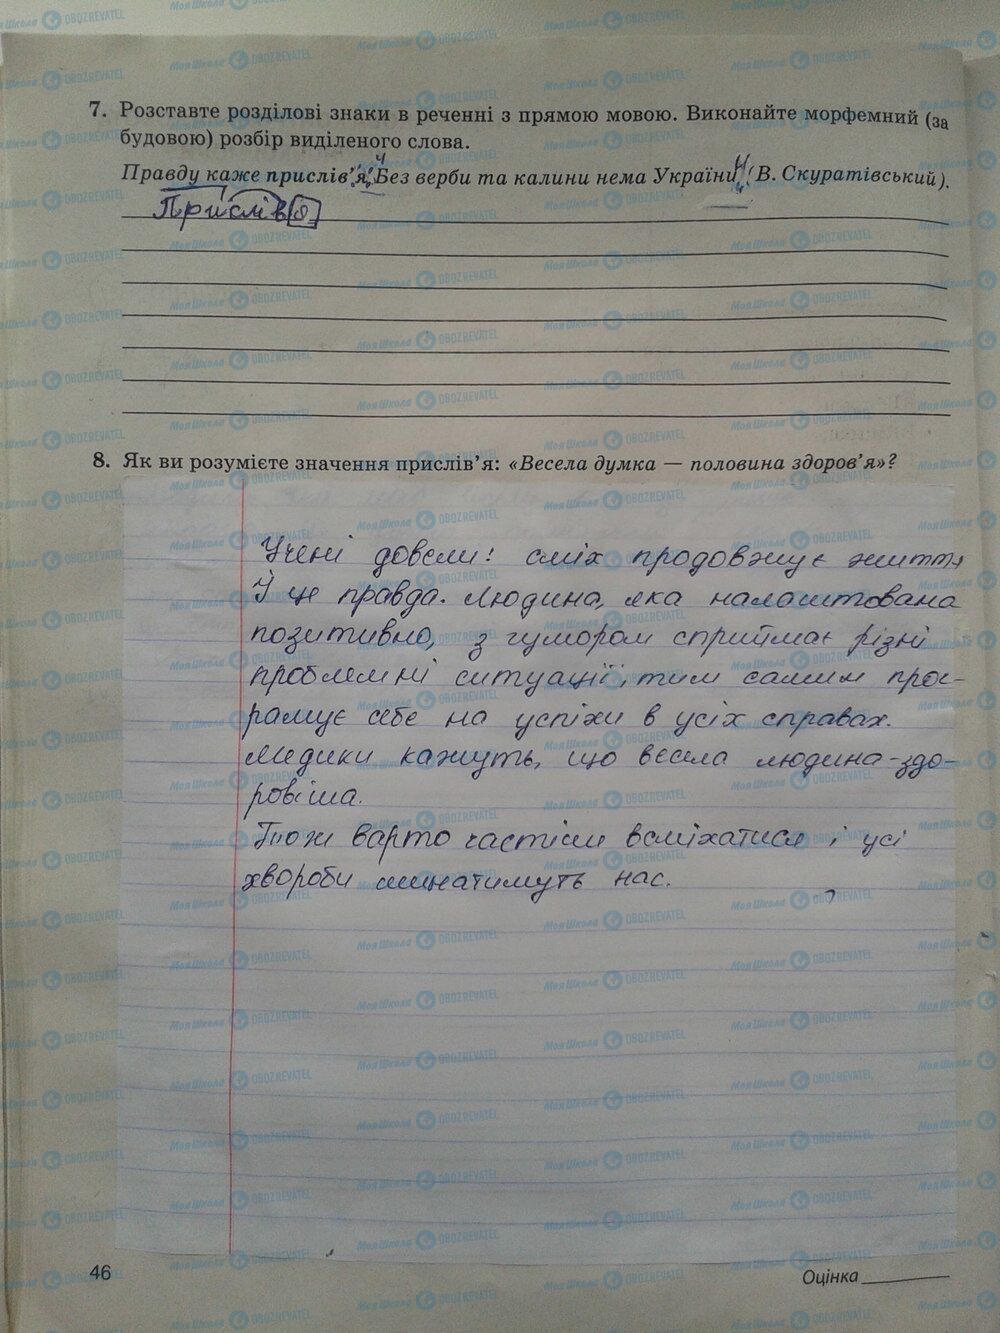 7. Розставте розділові знаки в реченні з прямою мовою. Виконайте морфемний (за
будовою) розбір виділеного слова.
Правду каже прислів’я: "Без верби та калини нема України" (В. Скуратівський).
Прислів'я
8. Як ви розумієте значення прислів’я: «Весела думка — половина здоров’я»?
Учені довели: сміх продовжує життя
І це правда. Людина, яка налаштована
позитивно, з гумором сприймає різні
проблемні ситуації, тим самим прог-
рамує себе на успіхи в усіх справах.
Медики кажуть, що весела людина - здо-
ровіша.
Тож варто частіше всміхатися і усі
хвороби минатимуть нас.
46
Оцінка